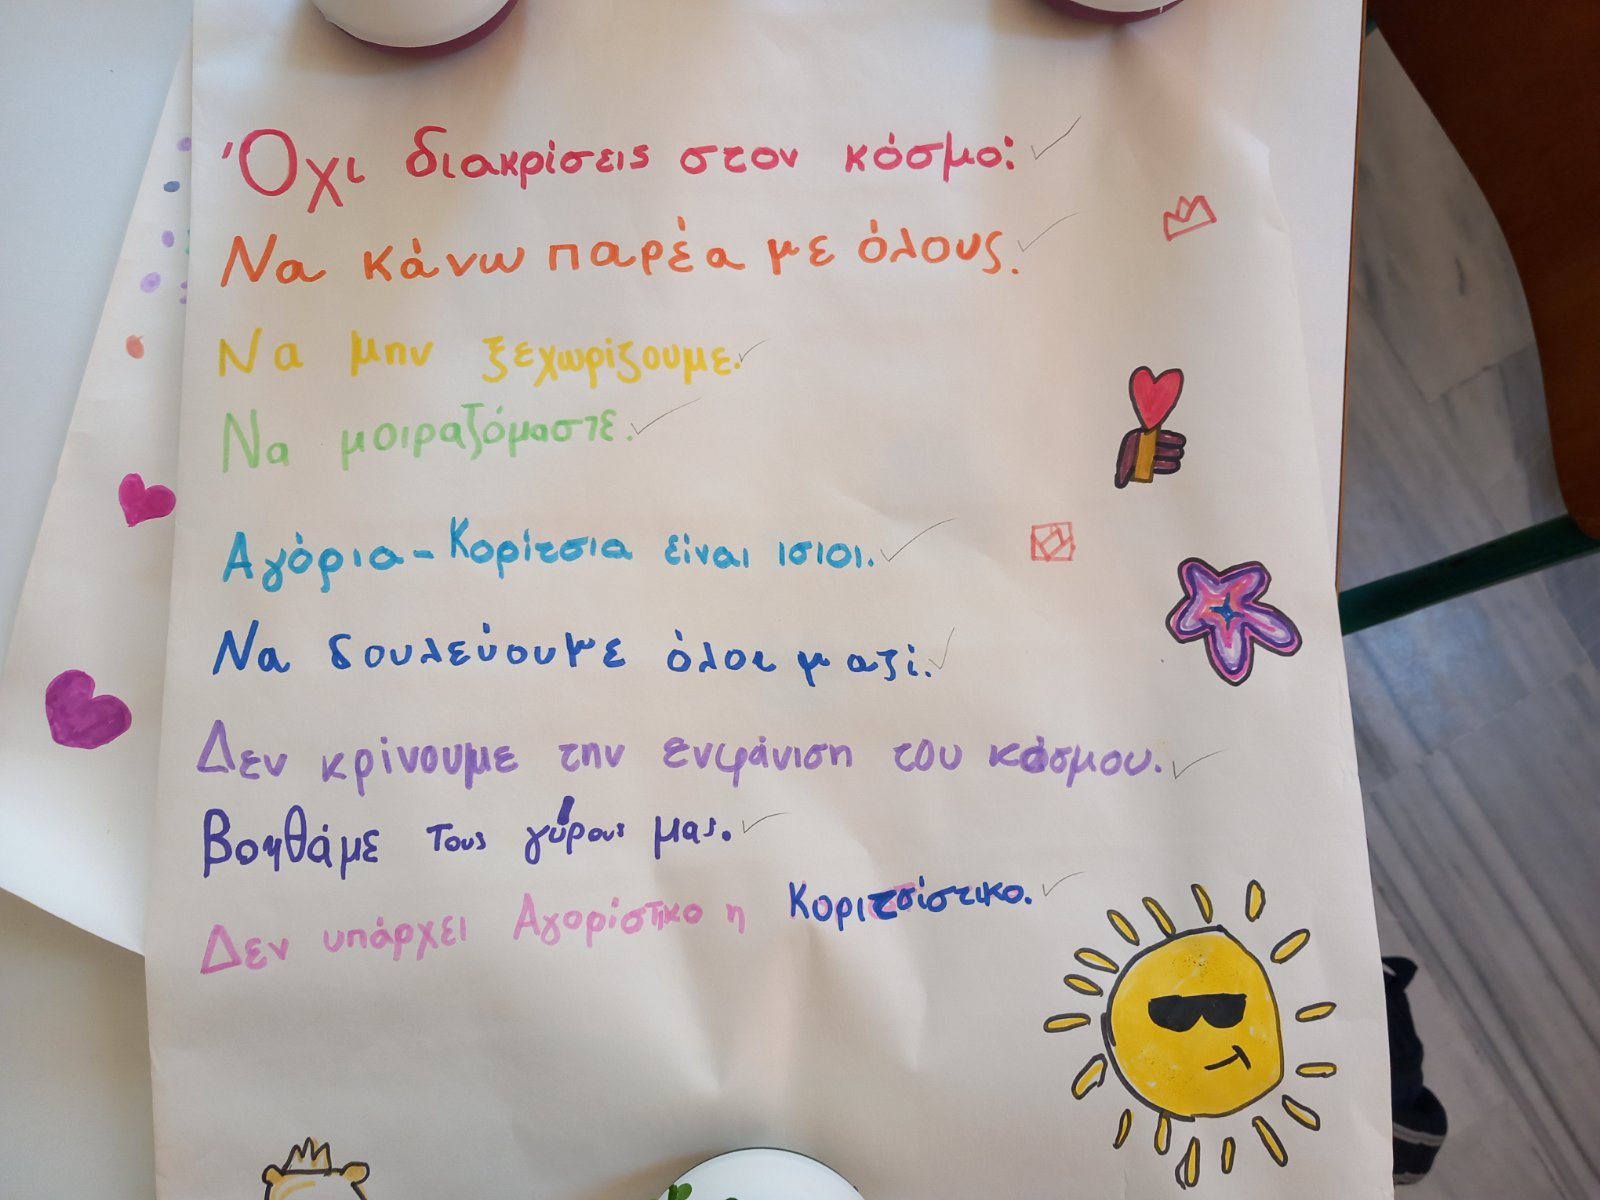 Όχι διακρίσεις στον κόσμο:
Να κάνω παρέα με όλους.
Να μην ξεχωρίζουμε.
Να μοιραζόμαστε.
Αγόρια - Κορίτσια είναι ισιοι.
Να δουλεύουμε όλοι μαζί.
Δεν κρίνουμε την ενφάνιση του κόσμου.
Βοηθάμε τους γύρους μας.
Δεν υπάρχει Αγορίστικο η Κοριτσίστικο.